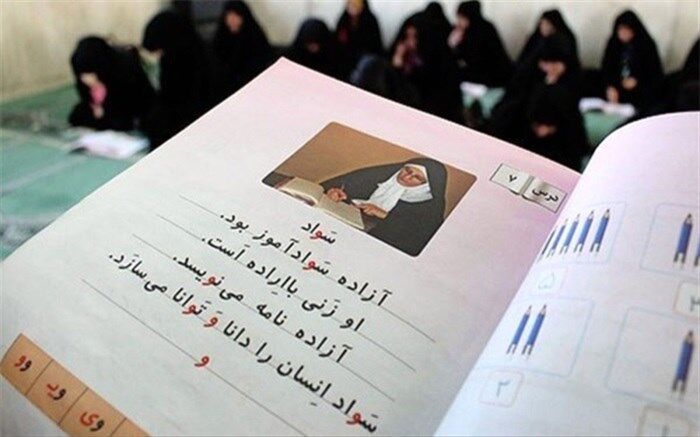 درس ۷
سَواد
آزاده سَوادآموز بود.
او زَنی بااِراده اَست.
آزاده نامه می‌نویسَد.
سَواد اِنسان را دانا وَ تَوانا می‌سازَد.
و
وو ویـ وی
۵
۲